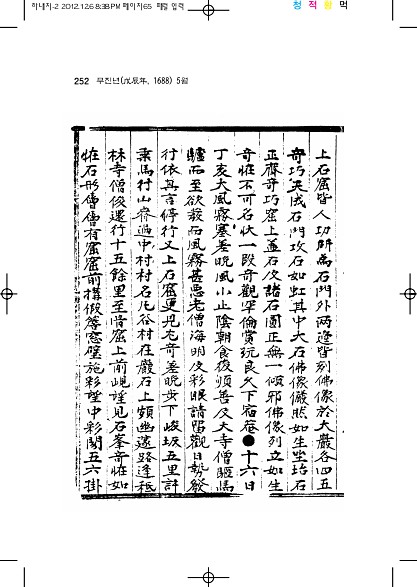 하내지-2 2012.12.6 8:38 PM 페이지65
청 적 황 먹
252 무진년(戊辰年, 1688) 5월
上石窟皆人功辟爲石門外兩邊皆刻佛像於大巖各四五
奇巧天成石門攻石如虹其中大石佛像儼然如生坐坮石
正齊奇巧窟上蓋石及諸石圓正無一傾邪佛像列立如生
奇恠不可名狀一段奇觀罕倫賞玩良久下宿菴●十六日
丁亥大風霧塞差晩風小止陰朝食後順善及大寺僧驅馬
驢而至欲發而風霧甚惡老僧海明及彩眼請留觀日勢發
行依其言停行又上石窟更見尤奇差晩步下峻坂五里許
乘馬行山脊過中村村名凡谷村在嚴石上頗幽邃路逢秪
林寺僧俊還行十五餘里至骨窟上前峴望見石峯奇恠如
恠石形僧僧有窟窟前構假簷窓壁施彩望中彩閣五六掛